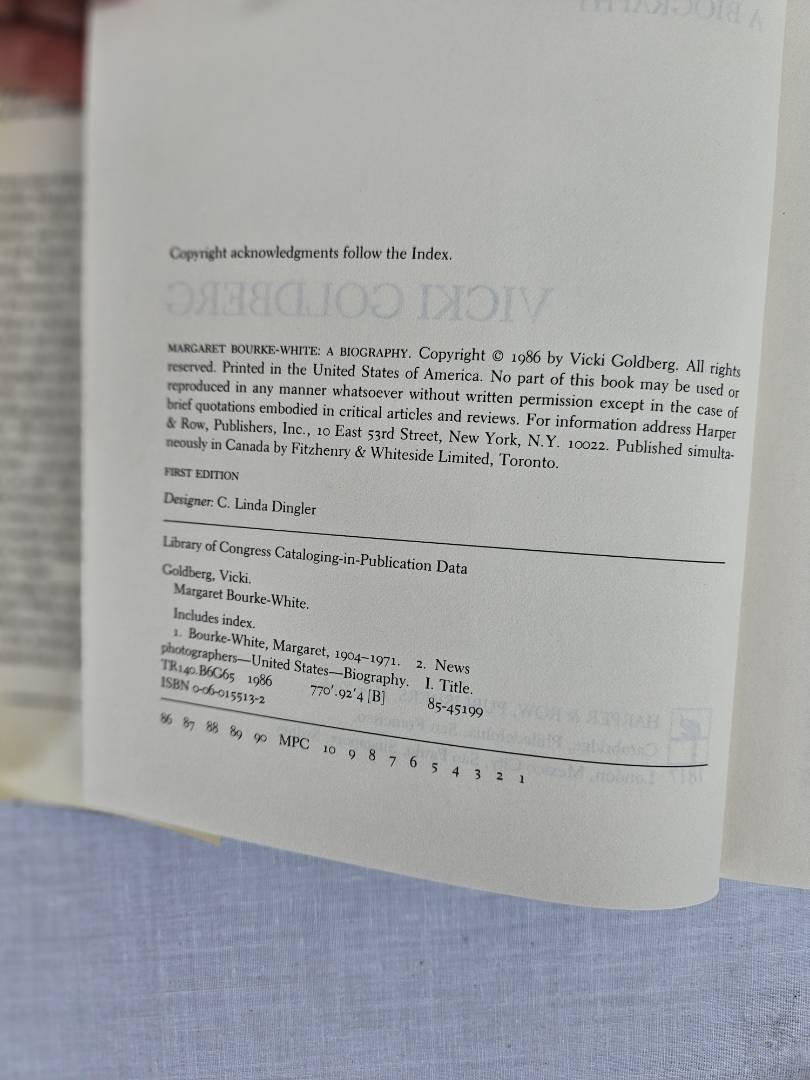 A BIOGRAPHY
Copyright acknowledgments follow the Index.
VICKI GOLDBERG
MARGARET BOURKE-WHITE: A BIOGRAPHY. Copyright © 1986 by Vicki Goldberg. All rights
reserved. Printed in the United States of America. No part of this book may be used or
reproduced in any manner whatsoever without written permission except in the case of
brief quotations embodied in critical articles and reviews. For information address Harper
& Row, Publishers, Inc., 10 East 53rd Street, New York, N.Y. 10022. Published simulta-
neously in Canada by Fitzhenry & Whiteside Limited, Toronto.
FIRST EDITION
Designer: C. Linda Dingler
Library of Congress Cataloging-in-Publication Data
Goldberg, Vicki.
Margaret Bourke-White.
Includes index.
1. Bourke-White, Margaret, 1904–1971. 2. News
photographers—United States—Biography. I. Title.
TR140.B6G65 1986 770'.92'4 [B] 85-45199
ISBN 0-06-015513-2
86 87 88 89 90 MPC 10 9 8 7 6 5 4 3 2 1
HARPER & ROW, PUBLISHERS
Cambridge, Philadelphia, San Francisco,
1817 London, Mexico City, São Paulo,